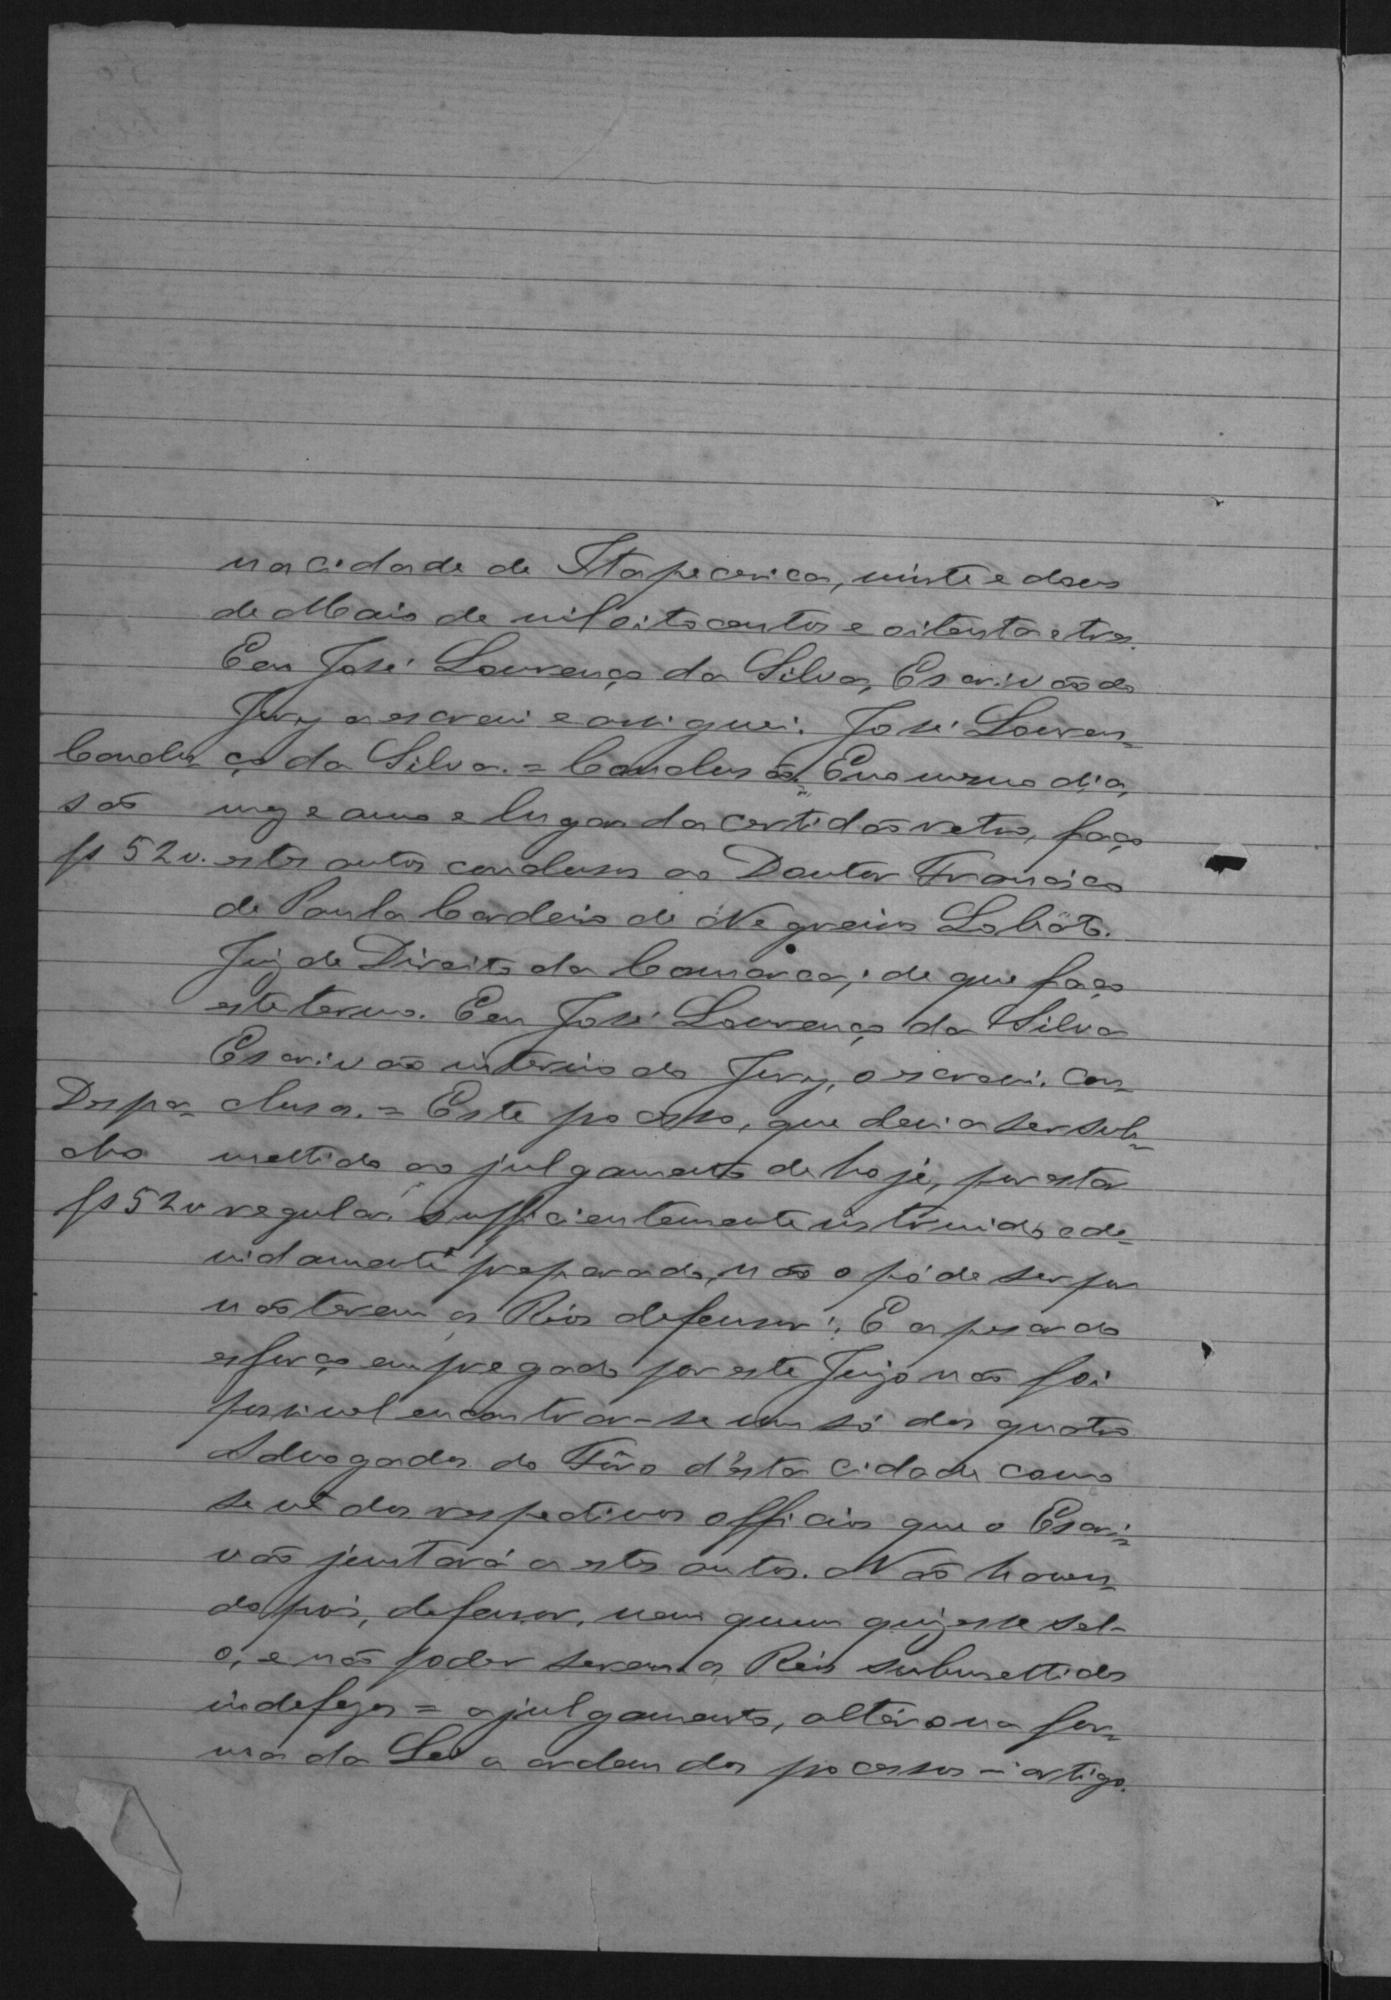 na cidade de Itapecerica, vinte e dous
de Maio de mil oitocentos e oitenta e tres.
Eu José Lourenço da Silva, Escrivão do
Jury o escrevi e assignei. José Louren=
Conclu= ço da Silva. = Conclusão = Eno mesmo dia,
são mez e anno e lugar da certidão retro, faço
fs 52 v. estes autos conclusos ao Doutor Francisco
de Paula Cordeiro de Negreiros Lobáto.
Juiz de Direito da Comarca; de que faço
este termo. Eu José Lourenço da Silva
Escrivão interino do Jury, o escrevi. Con=
Despa= clusos. = Este processo, que devia ser sub=
cho mettido ao julgamento de hoje, por estar
fs 52 v regular sufficientemente instruido e de=
vidamente preparado, não o póde ser por
não terem os Réos defensor: E apesar do
esforço empregado por este Juizo não foi
possivel encontrar-se um só dos quatro
Advogados do Fôro d'esta cidade como
se vê dos respectivos officios que o Escri=
vão juntará a estes autos. Não haven=
do pois, defensor, nem quem quizesse sel-
o, e não poder serem os Réos submettidos
indefezos = a julgamento, altéro na for=
ma da Lei a ordem dos processos - artigo.